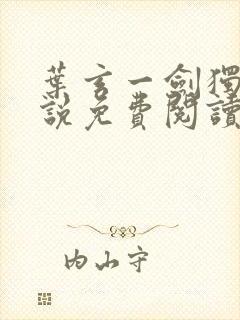 葉玄一劍獨
說免費閱讀
内山守